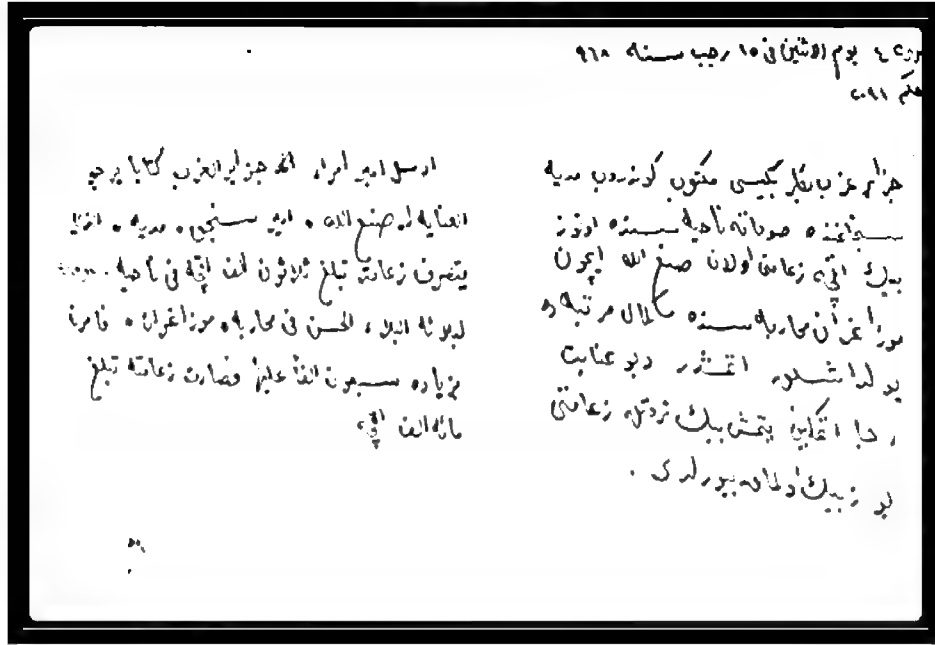 يوم الاثنين في ١٥ رجب سنه ٩٦٨
حكم ٢٠٩١
جزاير عرب بكلربكيسى مكتوب كوندروب مديه
سنجاغنده ناحيه سنده اوتوز
بيك اقچه زعامتى اولان صنع الله ايچون
محاربه سنده كمال مرتبه ده
يولداشلق اتمشدر ديو عنايت
رجا اتمكين يتمش بيك ترقى زعامتى
يوز بيك اولمق بيوردى .
ارسل امير امراء الجزاير العرب كتابا يرجو
العنايه لـ صنع الله ، امير سنجق ، مديه ،
يتصرف زعامة تبلغ ثلاثون الف اقچه في ناحيه
لبلائه البلاء الحسن في محاربه ، موزاغران ، فامرنا
بزياده سبعون الفا عليها فصارت زعامته تبلغ
مائه الف اقچه